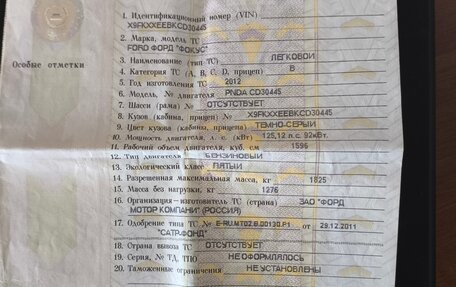 Особые отметки
1. Идентификационный номер (VIN)
X9FKXXEEBKCD30445
2. Марка, модель ТС
FORD ФОРД "ФОКУС"
3. Наименование (тип ТС) ЛЕГКОВОЙ
4. Категория ТС (А, В, С, D, прицеп) B
5. Год изготовления ТС 2012
6. Модель, № двигателя PNDA CD30445
7. Шасси (рама) № ОТСУТСТВУЕТ
8. Кузов (кабина, прицеп) № X9FKXXEEBKCD30445
9. Цвет кузова (кабины, прицепа) ТЕМНО-СЕРЫЙ
10. Мощность двигателя, л. с. (кВт) 125,12 л.с. 92кВт.
11. Рабочий объем двигателя, куб. см 1596
12. Тип двигателя БЕНЗИНОВЫЙ
13. Экологический класс ПЯТЫЙ
14. Разрешенная максимальная масса, кг 1825
15. Масса без нагрузки, кг 1276
16. Организация-изготовитель ТС (страна) ЗАО "ФОРД
МОТОР КОМПАНИ" (РОССИЯ)
17. Одобрение типа ТС № E-RU.MT02.B.00130.P1 от 29.12.2011
"САТР-ФОНД"
18. Страна вывоза ТС ОТСУТСТВУЕТ
19. Серия, № ТД, ТПО НЕ ОФОРМЛЯЛОСЬ
20. Таможенные ограничения НЕ УСТАНОВЛЕНЫ